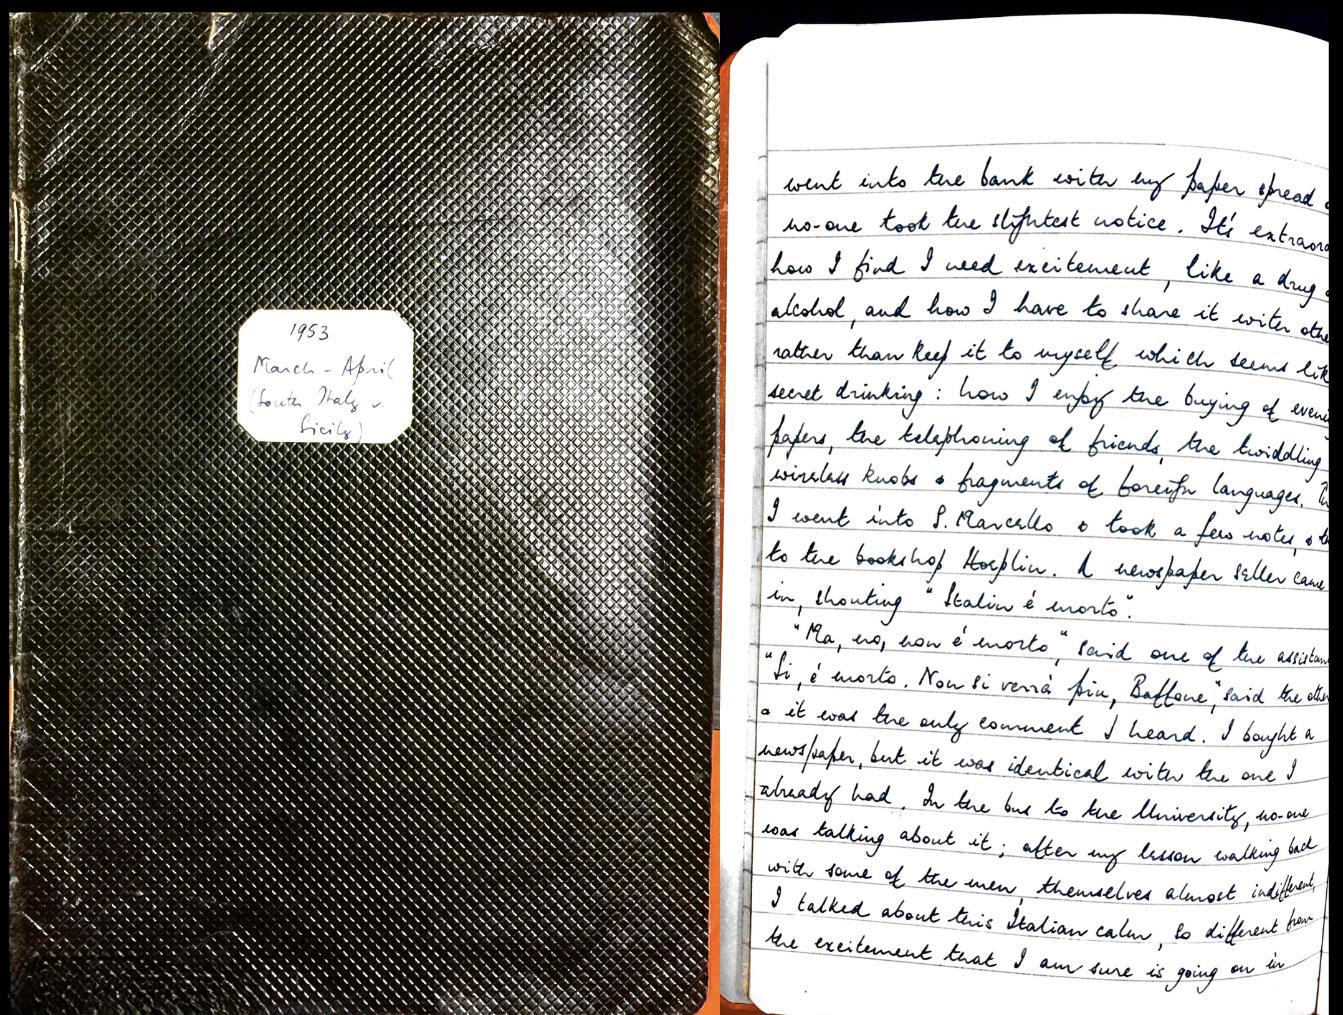 1953
March - April
(South Italy &
Sicily)
went into the bank with my paper spread
no-one took the slightest notice. It's extraor
how I find I need excitement, like a drug
alcohol, and how I have to share it with othe
rather than keep it to myself which seems lik
secret drinking: how I enjoy the buying of eveni
papers, the telephoning of friends, the twiddling
wireless knobs & fragments of foreign languages.
I went into S. Marcello & took a few notes, &
to the bookshop Hoeplin. A newspaper seller came
in, shouting "Stalin é morto".
"Ma, no, non é morto", said one of the assistan
"Si, é morto. Non si verrá piu, Baffone", said the other
& it was the only comment I heard. I bought a
newspaper, but it was identical with the one I
already had. In the bus to the University, no-one
was talking about it; after my lesson walking back
with some of the men, themselves almost indifferent,
I talked about this Italian calm, so different from
the excitement that I am sure is going on in